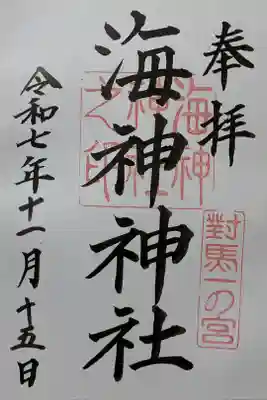 奉拝
對馬一の宮
海神神社
海神神社之印
令和七年十一月十五日